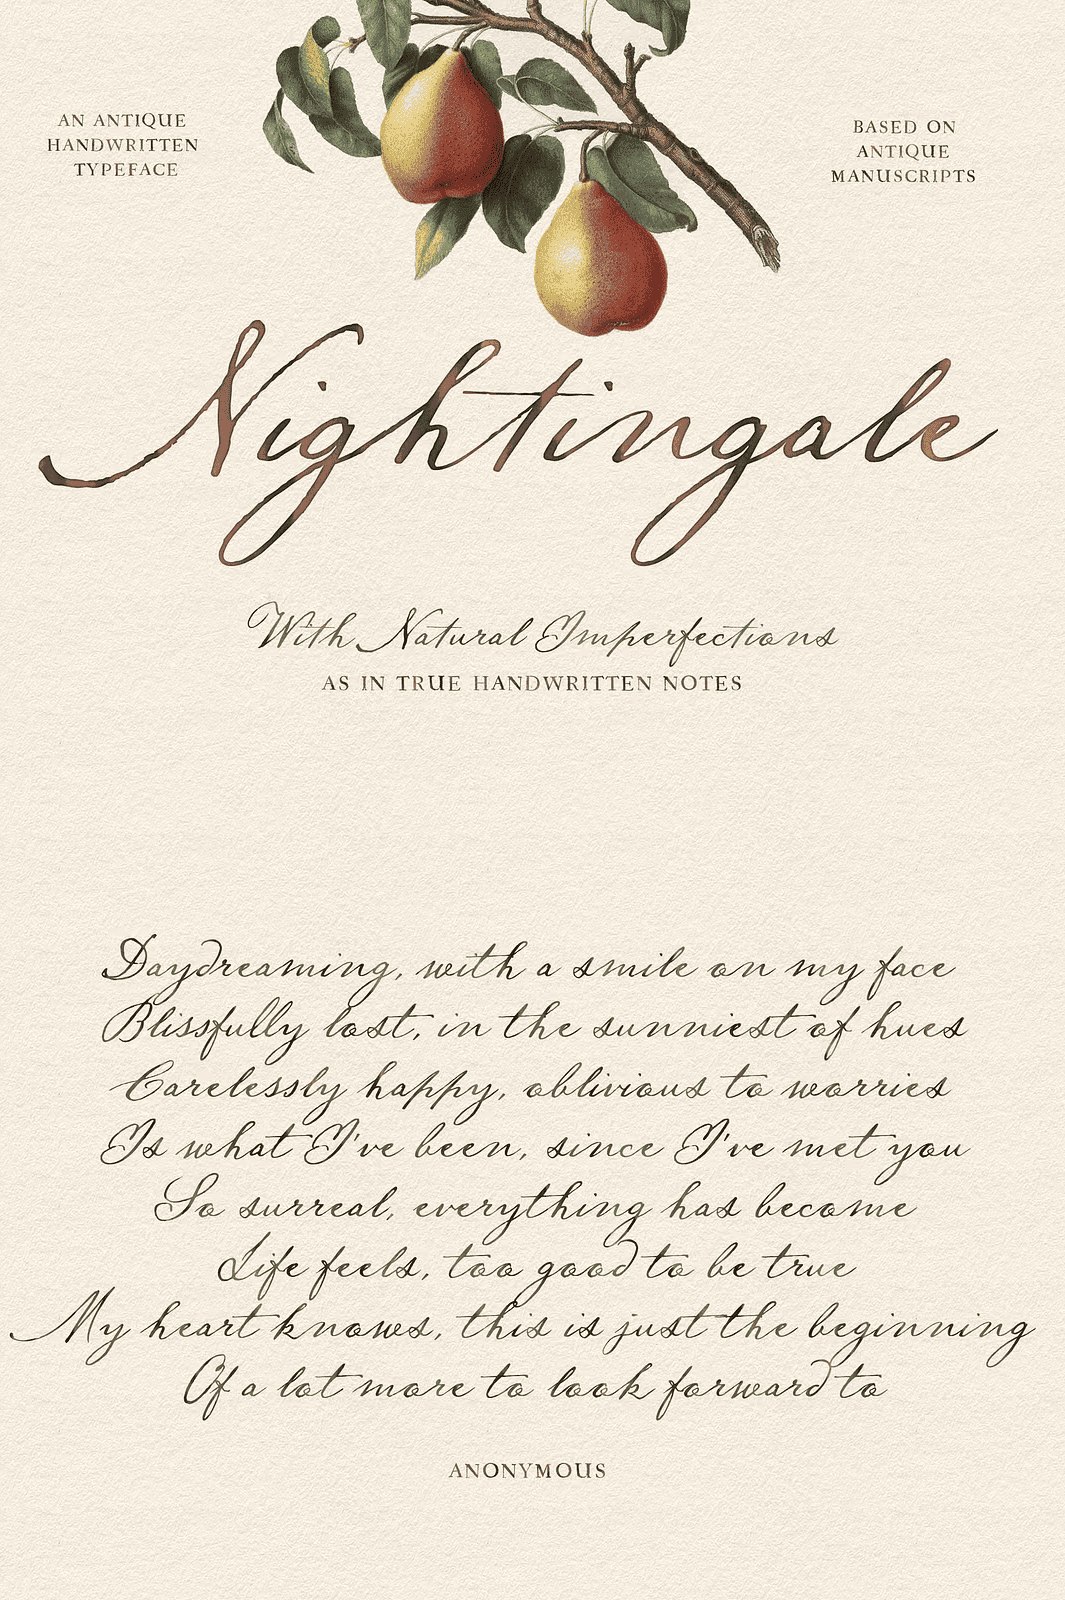 AN ANTIQUE
HANDWRITTEN
TYPEFACE
BASED ON
ANTIQUE
MANUSCRIPTS
Nightingale
With Natural Imperfections
AS IN TRUE HANDWRITTEN NOTES
Daydreaming, with a smile on my face
Blissfully lost, in the sunniest of hues
Carelessly happy, oblivious to worries
Is what I've been, since I've met you
So surreal, everything has become
Life feels, too good to be true
My heart knows, this is just the beginning
Of a lot more to look forward to
ANONYMOUS